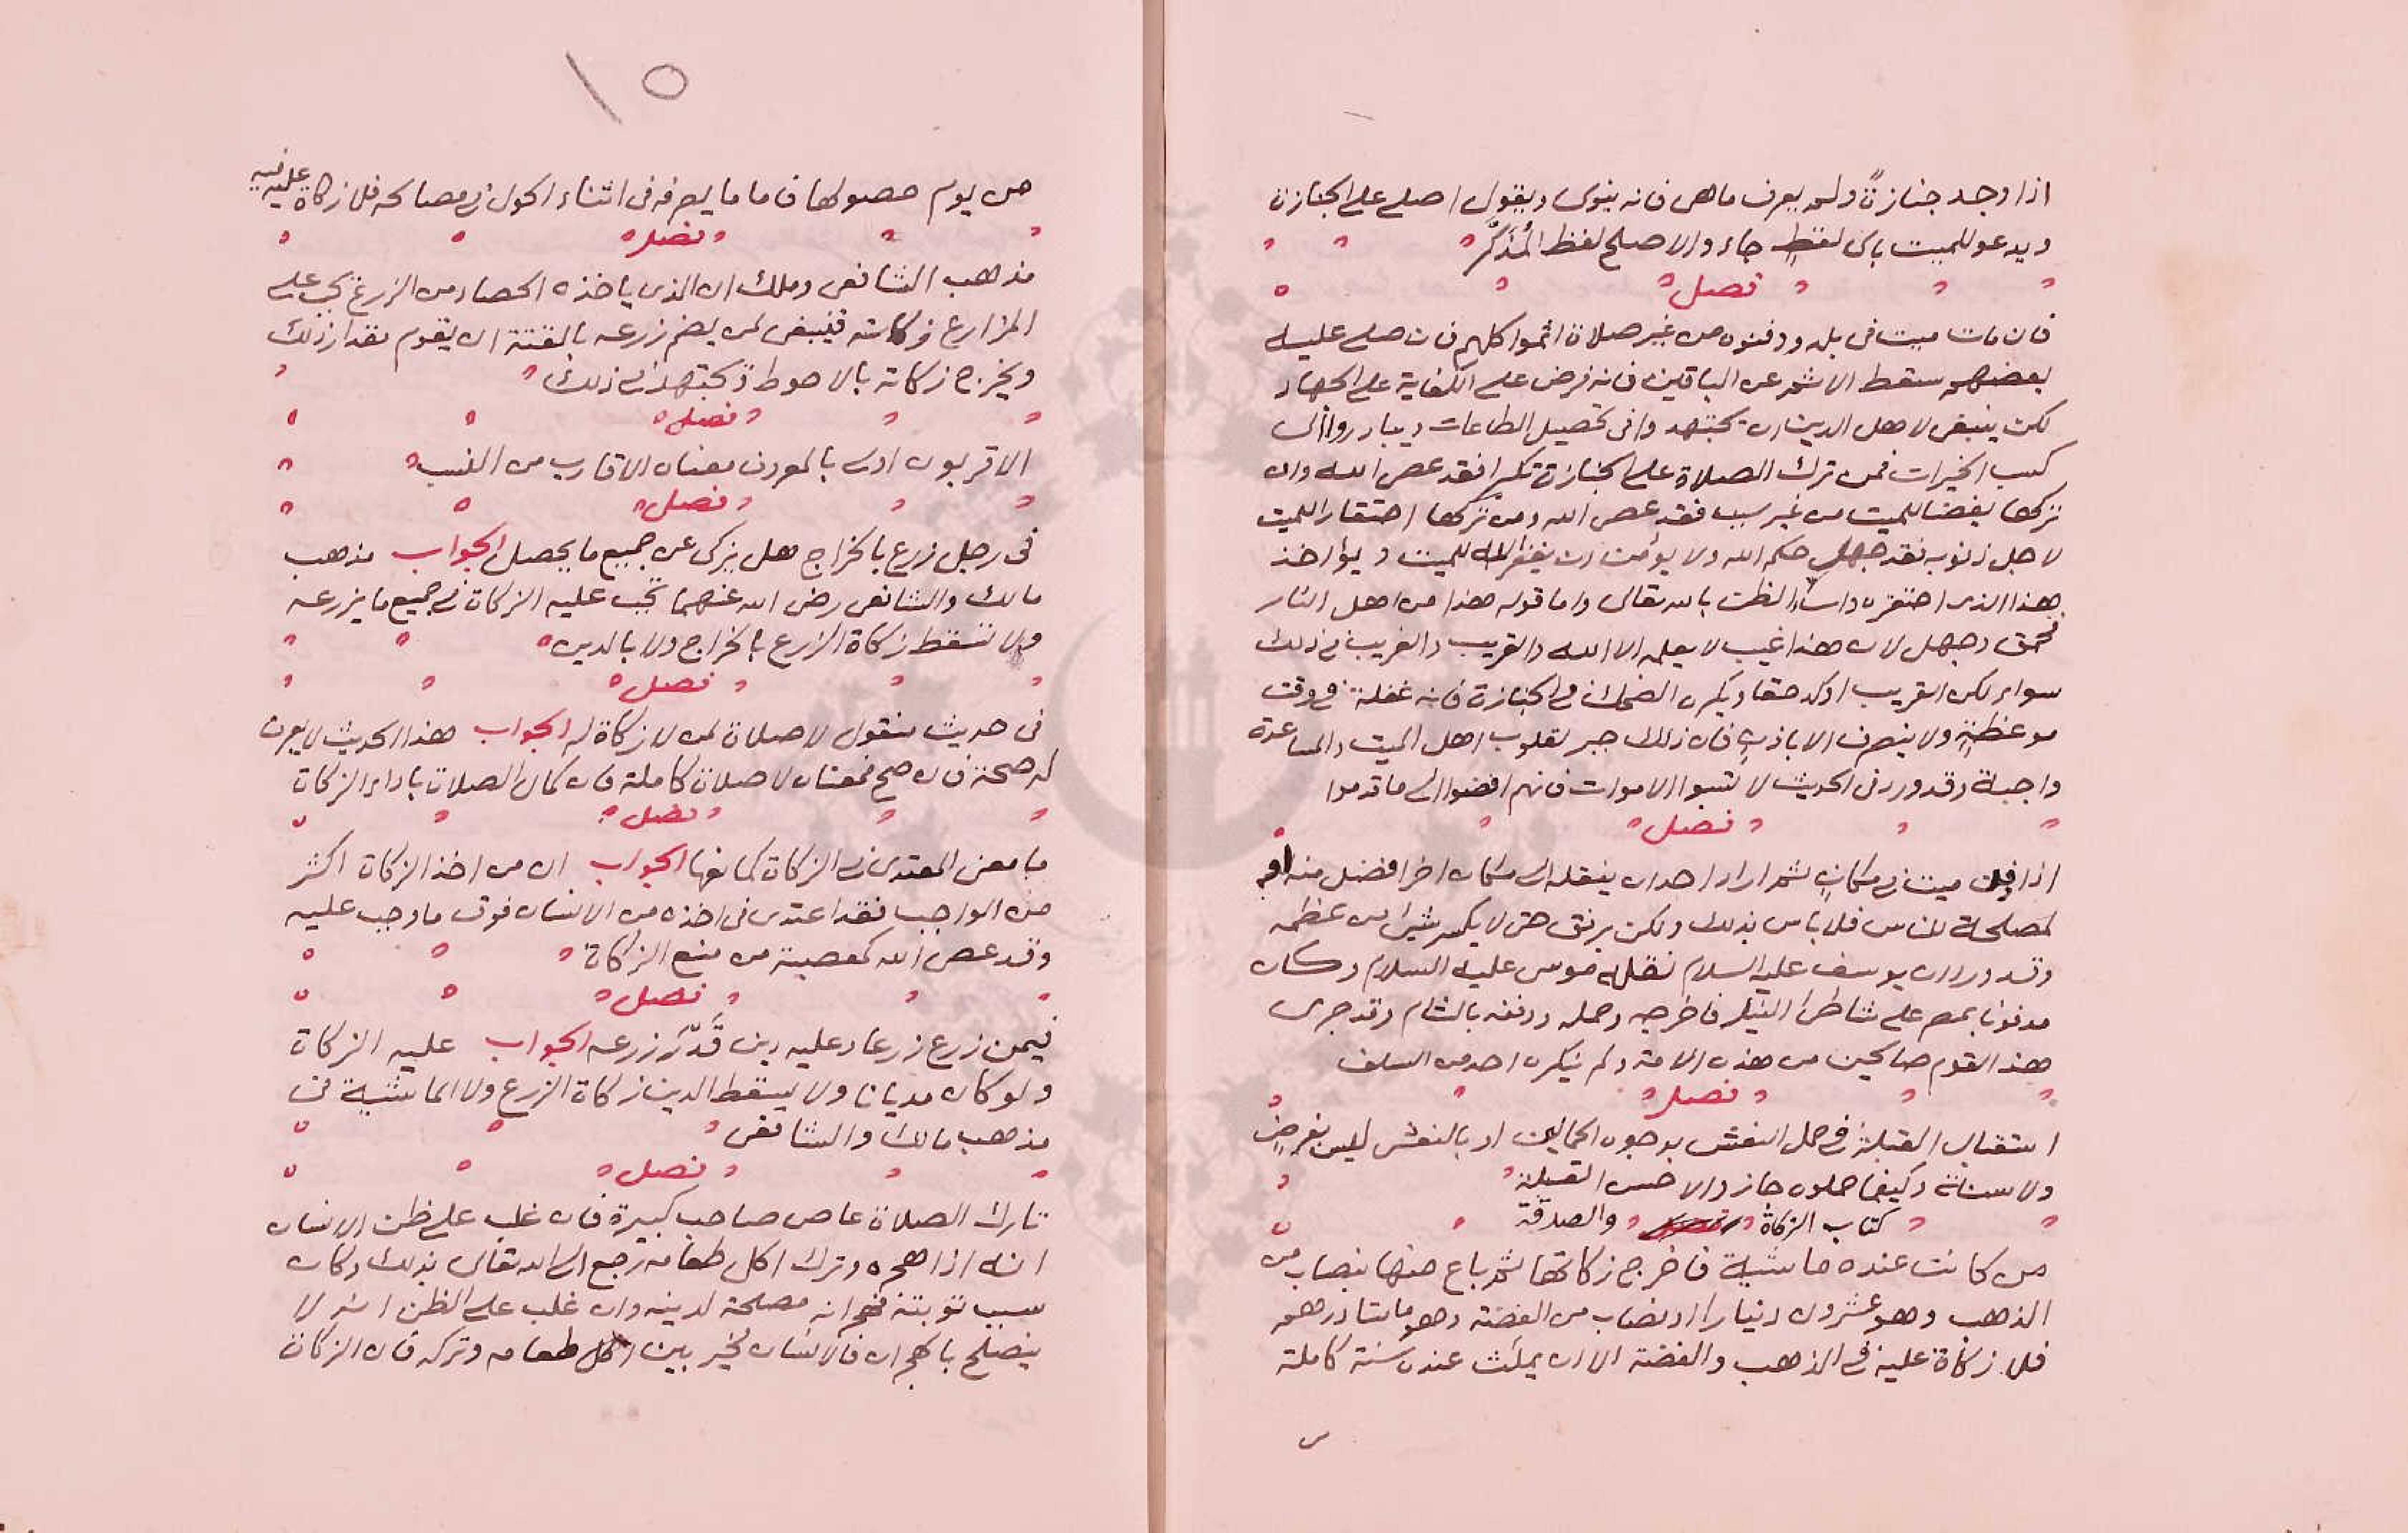 اذا وجد جنازةً ولم يعرف ماهى فانه ينوى ويقول اصلى على الجنازة
ويدعو للميت باى لفظٍ جاء والاصلح لفظ المُذَكَّر
فصل
فان مات ميت فى بلد ودفنوه من غير صلاة اثموا كلهم فان صلى عليه
بعضهم سقط الاثم عن الباقين فانه فرض على الكفاية على الجهاد
لكن ينبغى لاهل الدين ان يجتهدوا فى تحصيل الطاعات ويبادروا الى
كسب الخيرات فمن ترك الصلاة على الجنازة تكبرا فقد عصى الله وان
تركها بغضا للميت من غير سبب فقد عصى الله ومن تركها احتقارا للميت
لاجل ذنوبه فقد جهل حكم الله ولا يؤمن ان يغفر الله للميت ويؤاخذ
هذا الذى احتقره واساء الظن بالله تعالى واما قوله هذا من اهل النار
فحمق وجهل لان هذا غيب لا يعلمه الا الله والقريب والغريب فى ذلك
سواء لكن القريب اوكد حقا ويكره الضحك فى الجنازة فانه غفلة فى وقت
موعظةٍ ولا ينصرف الا باذنٍ فان ذلك جبر لقلوب اهل الميت والمساعدة
واجبة وقد ورد فى الحديث لا تسبوا الاموات فانهم افضوا الى ما قدموا
فصل
اذا دفن ميت فى مكانٍ ثم اراد احد ان ينقله الى مكان اخر افضل منه او
لمصلحة للناس فلا باس بذلك ولكن برفق حتى لا يكسر شيئا من عظمه
وقد ورد ان يوسف عليه السلام نقله موسى عليه السلام وكان
مدفونا بمصر على شاطئ النيل فاخرجه وحمله ودفنه بالشام وقد جرى
هذا القوم صالحين من هذه الامة ولم ينكره احد من السلف
فصل
استقبال القبلة فى حمل النعش بوجوه الحمالين او بالنعش ليس بفرضٍ
ولا سنة وكيفما حملوه جاز والاحسن القبلة
كتاب الزكاة والصدقة
من كانت عنده ماشية فاخرج زكاتها ثم باع منها بنصاب من
الذهب وهو عشرون دينارا او نصاب من الفضة وهو مائتا درهم
فلا زكاة عليه فى الذهب والفضة الا ان يمكث عنده سنة كاملة
١٥
من يوم حصولها فاما ما يصرفه فى اثناء الحول فى مصالحه فلا زكاة عليه فيه
فصل
مذهب الشافعى وملك ان الذى ياخذه الحصاد من الزرع تجب على
المزارع زكاته فينبغى لمن يضم زرعه بالقتة ان يقوم مقدار ذلك
ويخرج زكاته بالاحوط ويجتهد فى ذلك
فصل
الاقربون اولى بالمعروف معناه الاقارب من النسب
فصل
فى رجل زرع بالخراج هل يزكى عن جميع ما يحصل الجواب مذهب
مالك والشافعى رضى الله عنهما تجب عليه الزكاة فى جميع ما يزرعه
ولا تسقط زكاة الزرع بالخراج ولا بالدين
فصل
فى حديث منقول لا صلاة لمن لا زكاة له الجواب هذا الحديث لا يعرف
له صحة فان صح فمعناه لا صلاة كاملة فان كمال الصلاة باداء الزكاة
فصل
ما معنى المعتدى فى الزكاة كمانعها الجواب ان من اخذ الزكاة اكثر
من الواجب فقد اعتدى فى اخذه من الانسان فوق ما وجب عليه
وقد عصى الله كمعصية من منع الزكاة
فصل
فيمن زرع زرعا وعليه دين قَدَّرَ زرعه الجواب عليه الزكاة
ولو كان مديانا ولا يسقط الدين زكاة الزرع ولا الماشية فى
مذهب مالك والشافعى
فصل
تارك الصلاة عاص صاحب كبيرة فان غلب على ظن الانسان
انه اذا هجره وترك اكل طعامه رجع الى الله تعالى بذلك وكان
سبب توبته فهجرانه مصلحة لدينه وان غلب على الظن انه لا
ينصلح بالهجران فالانسان مخير بين اكل طعامه وتركه فان الزكاة